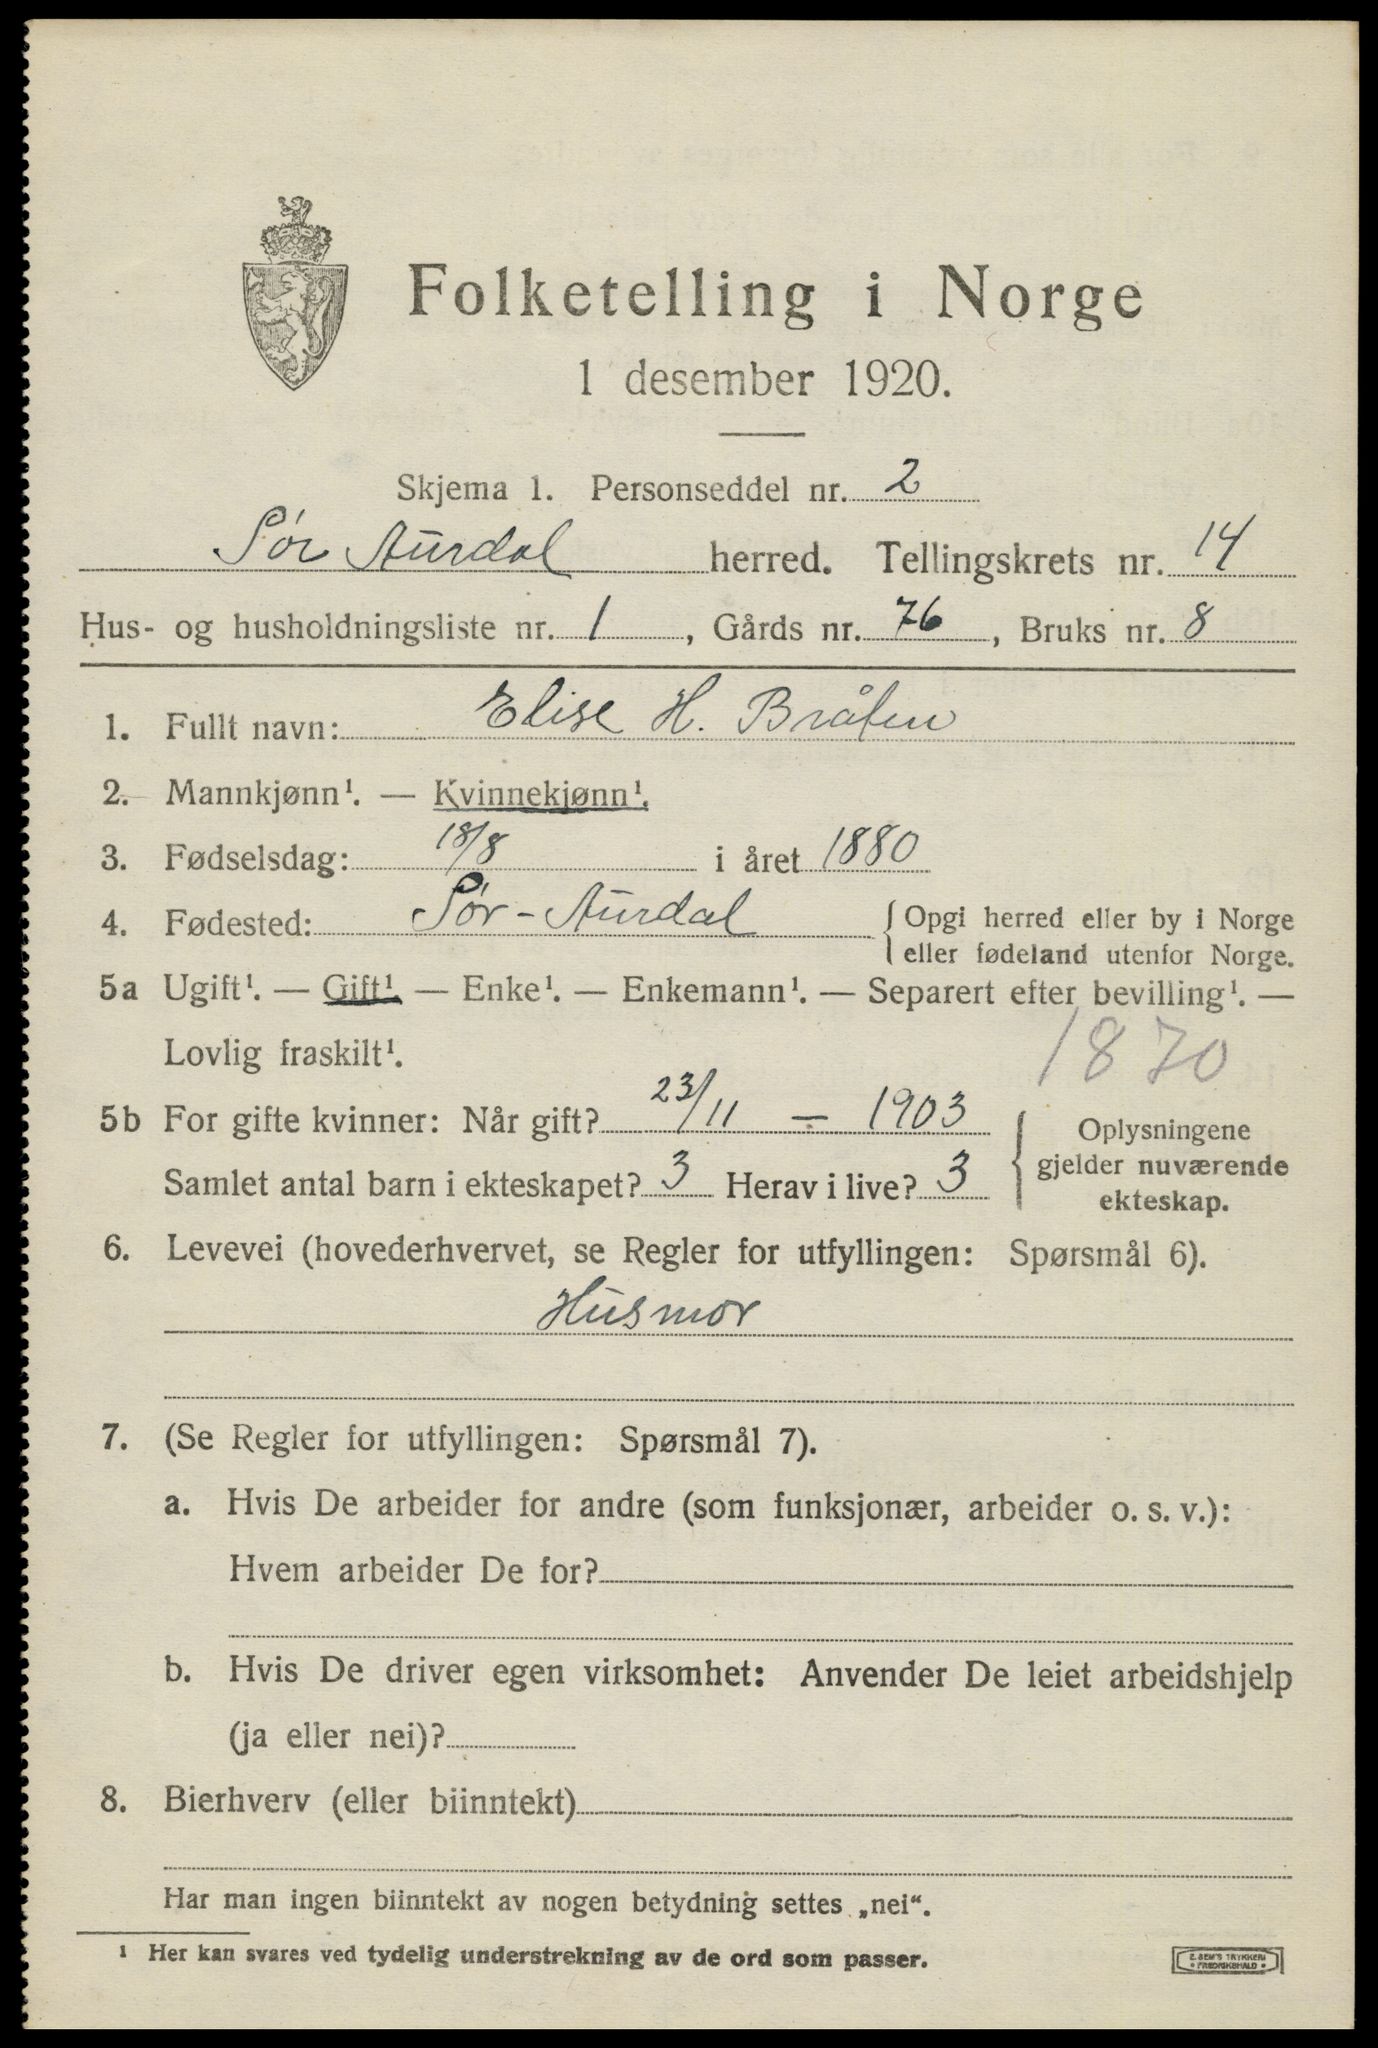 Folketelling i Norge
1 desember 1920.
Skjema 1. Personseddel nr. 2
Sør Aurdal herred. Tellingskrets nr. 14
Hus- og husholdningsliste nr. 1, Gårds nr. 76, Bruks nr. 8
1. Fullt navn: Elise H. Bråten
2. Mannkjønn¹. — Kvinnekjønn¹.
3. Fødselsdag: 18/8 i året 1880
4. Fødested: Sør-Aurdal { Opgi herred eller by i Norge
eller fødeland utenfor Norge.
5a Ugift¹. — Gift¹. — Enke¹. — Enkemann¹. — Separert efter bevilling¹. —
Lovlig fraskilt¹.
1870
5b For gifte kvinner: Når gift? 23/11 — 1903
Samlet antal barn i ekteskapet? 3 Herav i live? 3
Oplysningene
gjelder nuværende
ekteskap.
6. Levevei (hovederhvervet, se Regler for utfyllingen: Spørsmål 6).
Husmor
7. (Se Regler for utfyllingen: Spørsmål 7).
a. Hvis De arbeider for andre (som funksjonær, arbeider o. s. v.):
Hvem arbeider De for?
b. Hvis De driver egen virksomhet: Anvender De leiet arbeidshjelp
(ja eller nei)?
8. Bierhverv (eller biinntekt)
Har man ingen biinntekt av nogen betydning settes „nei“.
¹ Her kan svares ved tydelig understrekning av de ord som passer.
E. SEM'S TRYKKERI
• FREDRIKSHALD •